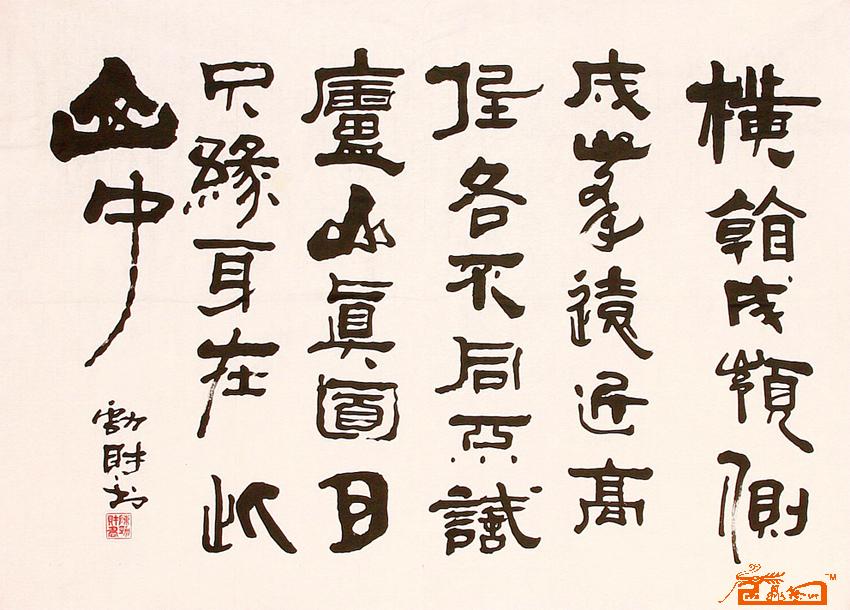 橫看成嶺側
成峯遠近高
低各不同不識
廬山眞面目
只緣身在此
山中